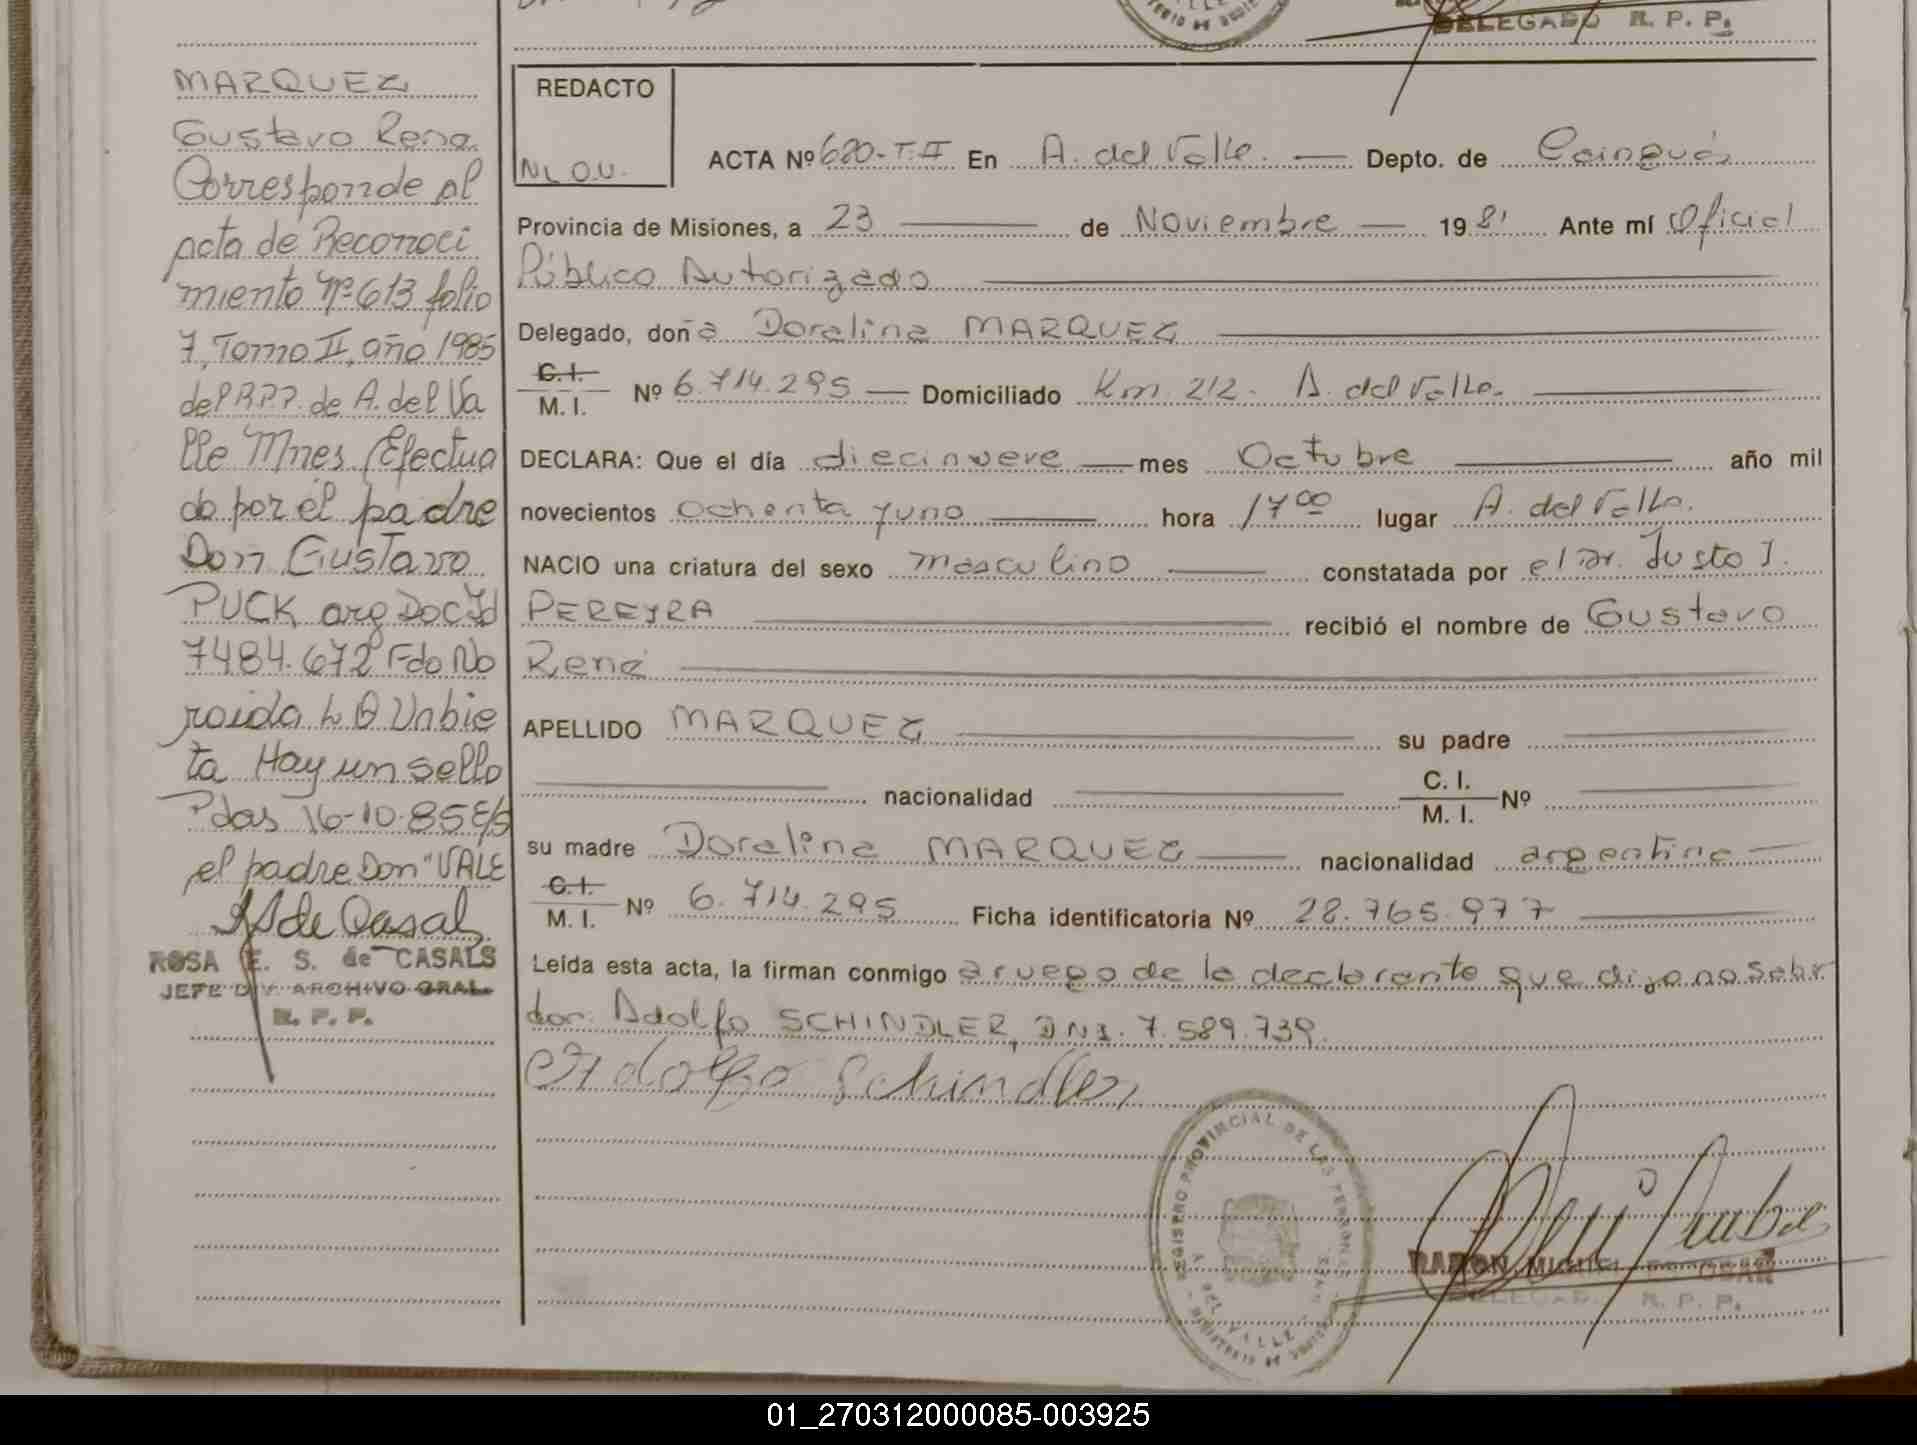 DELEGADO R. P. P.
MARQUEZ
Gustavo Rene
Corresponde al
acta de Reconoci
miento Nº 613 folio
7, Tomo II, año 1985
del R.P.P. de A. del Va
lle Mnes Efectua
do por el padre
Don Gustavo
PUCK arg Doc Id
7484.672 Fdo No
Hay un sello
Pdas 16-10-85 E/s
el padre Don "VALE
RS de Casals
ROSA E. S. de CASALS
JEFE DIV ARCHIVO GRAL.
R. P. P.
REDACTO
ACTA Nº 680-T.II En A. del Valle. Depto. de Cainguás
Provincia de Misiones, a 23 de Noviembre 1981 Ante mí Oficial
Público Autorizado
Delegado, doña Doralina MARQUEZ
C. I.
M. I. Nº 6.714.295 Domiciliado Km. 212. A. del Valle.
DECLARA: Que el día diecinueve mes Octubre año mil
novecientos ochenta y uno hora 17 00 lugar A. del Valle.
NACIO una criatura del sexo masculino constatada por el Dr. Justo I.
PEREYRA recibió el nombre de Gustavo
René
APELLIDO MARQUEZ su padre
nacionalidad C. I.
M. I. Nº
su madre Doralina MARQUEZ nacionalidad argentina
C. I.
M. I. Nº 6.714.295 Ficha identificatoria Nº 28.765.977
Leída esta acta, la firman conmigo a ruego de la declarante que dijo no saber
Adolfo SCHINDLER, DNI. 7.589.739.
Adolfo Schindler
REGISTRO PROVINCIAL DE LAS PERSONAS
A. DEL VALLE
RAMON MIGUEL
DELEGADO R. P. P.
01_270312000085-003925